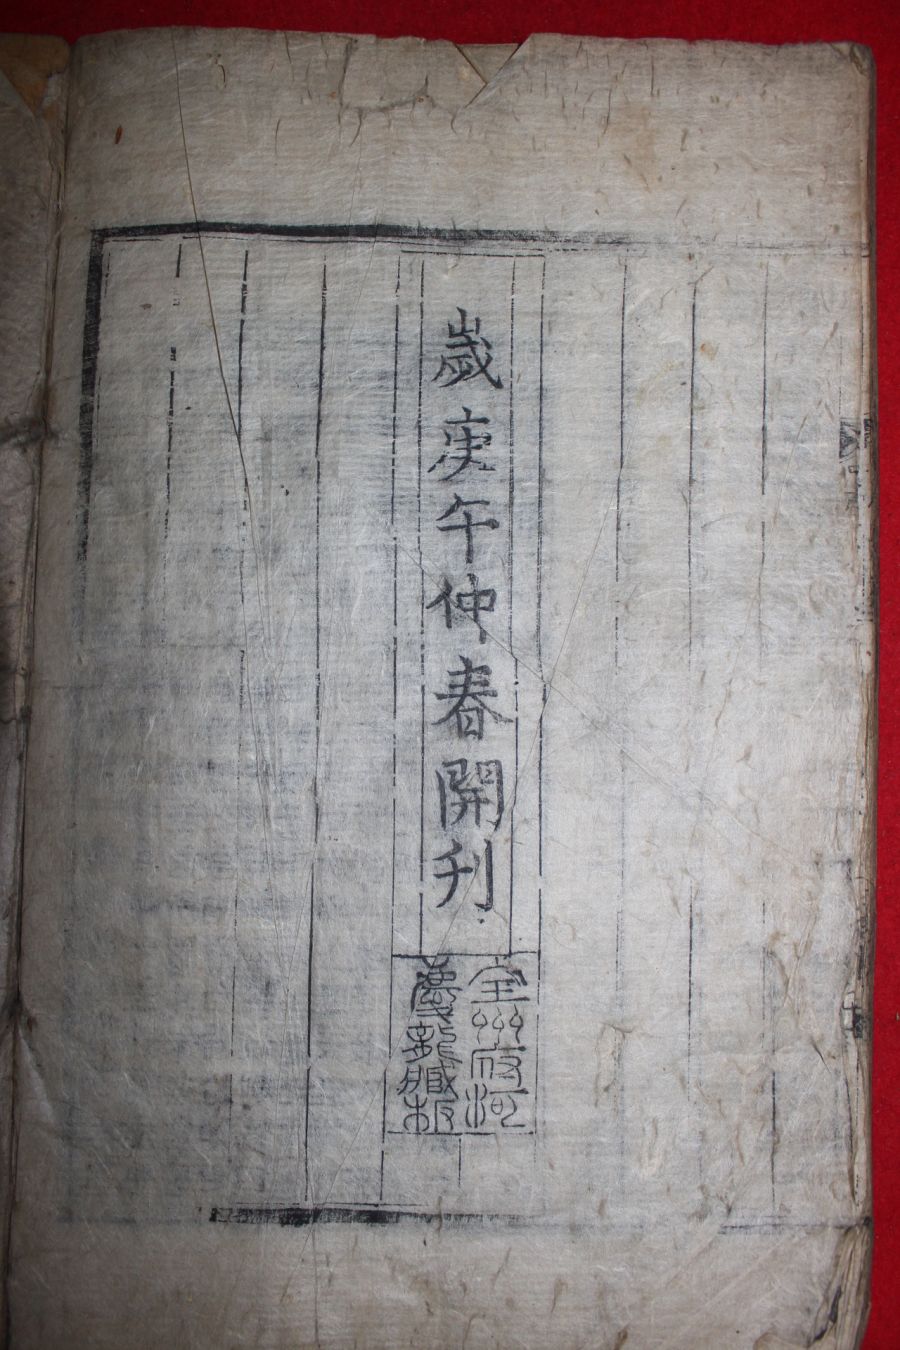 歲庚午仲春開刊
全州府河
慶龍臧板